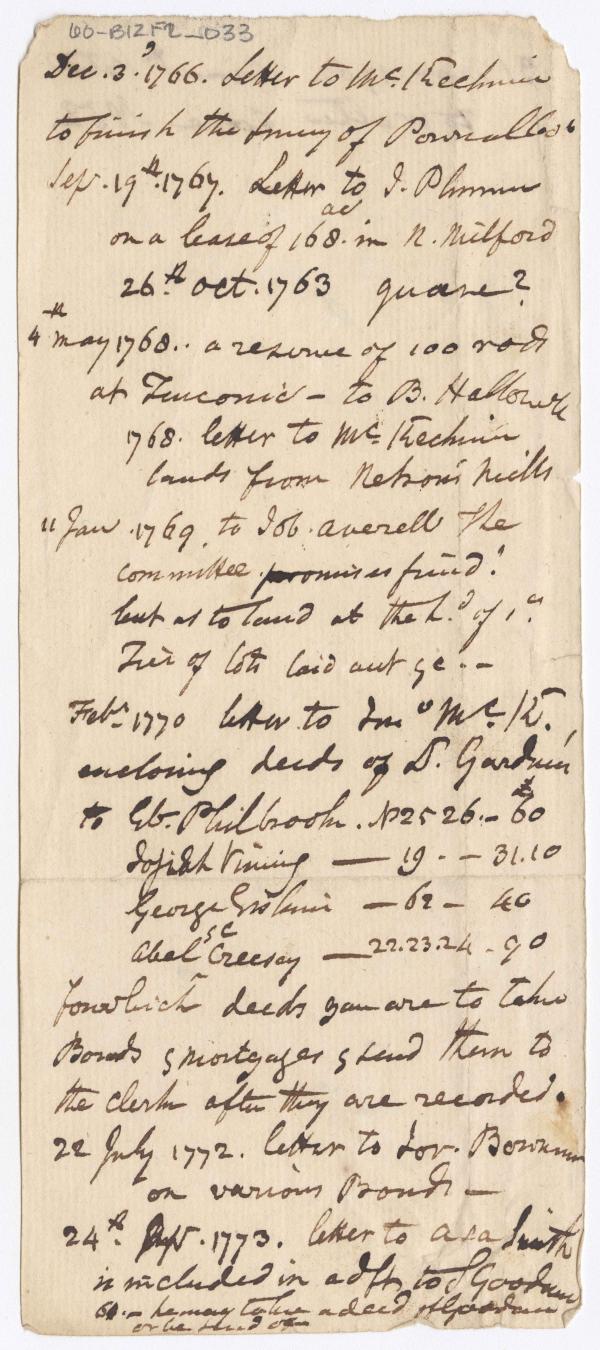 60-B12F2_033
Dec. 3.d 1766. Letter to Mc. Kechnie
to finish the survey of Pownallbo'
Sep. 19th. 1767. Letter to J. Plummer
on a lease of 168. ac in N. Milford
26.th Oct. 1763 quare?
4th May 1768.. a reserve of 100 rods
at Taconic - to B. Hallowell
1768. letter to Mc. Kechnie
lands from Nelson's Mills
" Jan. 1769, to Job. Averell The
committee promises
but as to land at the h.d of 1.st
Tier of lots laid out &c --
Feb. 1770 letter to Jno Mc. K.,
enclosing deeds of D. Gardiner
to Gb. Philbrook. No 25 26. - 60
Josiah Vining — 19 - - 31.10
George Erskine — 62 - 40
Abel Creesey — 22.23.24 - 90
for which deeds you are to take
Bonds & mortgages & send them to
the clerk after they are recorded.
22 July 1772. letter to Jon. Bowman
on various Bonds —
24th. 1773. letter to Asa Smith
is included in adft. to S Goodwin
60. - he may take a deed of Goodwin
or be sued